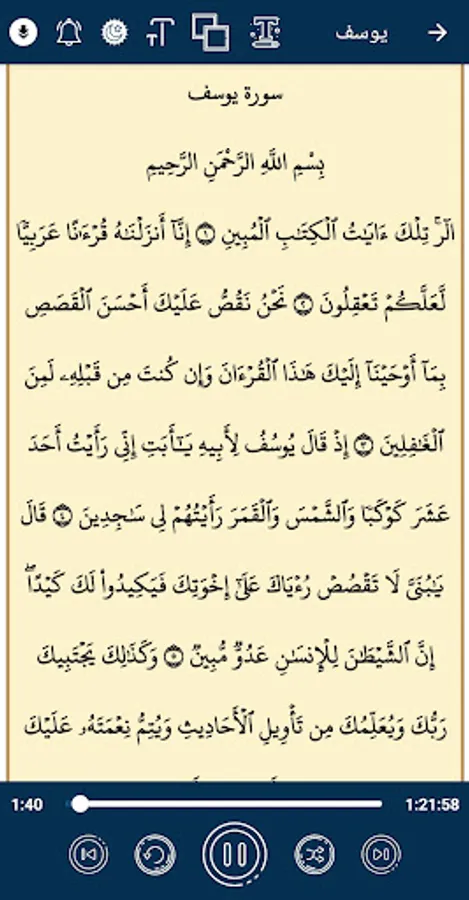 يوسف
سورة يوسف
بِسْمِ اللَّهِ الرَّحْمَنِ الرَّحِيمِ
الٓرۚ تِلْكَ ءَايَٰتُ ٱلْكِتَٰبِ ٱلْمُبِينِ ۝١ إِنَّآ أَنزَلْنَٰهُ قُرْءَٰنًا عَرَبِيًّا
لَّعَلَّكُمْ تَعْقِلُونَ ۝٢ نَحْنُ نَقُصُّ عَلَيْكَ أَحْسَنَ ٱلْقَصَصِ
بِمَآ أَوْحَيْنَآ إِلَيْكَ هَٰذَا ٱلْقُرْءَانَ وَإِن كُنتَ مِن قَبْلِهِۦ لَمِنَ
ٱلْغَٰفِلِينَ ۝٣ إِذْ قَالَ يُوسُفُ لِأَبِيهِ يَٰٓأَبَتِ إِنِّى رَأَيْتُ أَحَدَ
عَشَرَ كَوْكَبًا وَٱلشَّمْسَ وَٱلْقَمَرَ رَأَيْتُهُمْ لِى سَٰجِدِينَ ۝٤ قَالَ
يَٰبُنَىَّ لَا تَقْصُصْ رُءْيَاكَ عَلَىٰٓ إِخْوَتِكَ فَيَكِيدُوا۟ لَكَ كَيْدًاۖ
إِنَّ ٱلشَّيْطَٰنَ لِلْإِنسَٰنِ عَدُوٌّ مُّبِينٌ ۝٥ وَكَذَٰلِكَ يَجْتَبِيكَ
رَبُّكَ وَيُعَلِّمُكَ مِن تَأْوِيلِ ٱلْأَحَادِيثِ وَيُتِمُّ نِعْمَتَهُۥ عَلَيْكَ
1:40 1:21:58